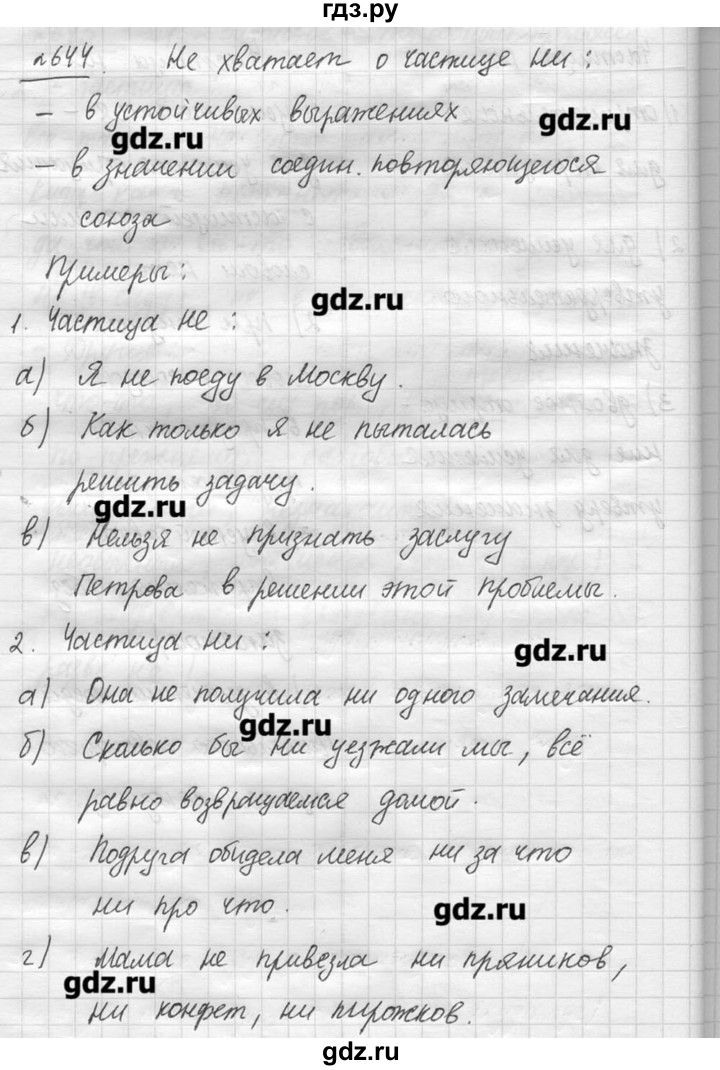 гдз.ру
№644. Не хватает о частице ни:
– в устойчивых выражениях
gdz.ru
gdz.ru
– в значении соедин. повторяющегося
союза
Примеры:
gdz.ru
1. Частица не:
а) Я не поеду в Москву.
б) Как только я не пыталась
решить задачу.
gdz.ru
в) Нельзя не признать заслугу
Петрова в решении этой проблемы.
2. Частица ни:
gdz.ru
а) Она не получила ни одного замечания.
gdz.ru
б) Сколько бы ни уезжали мы, всё
равно возвращаемся домой.
в) Подруга обидела меня ни за что
ни про что.
gdz.ru
г) Мама не привезла ни пряников,
gdz.ru
ни конфет, ни пирожков.
gdz.ru